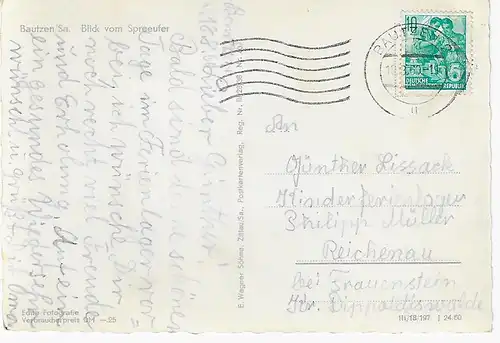 Bautzen/Sa. Blick vom Spreeufer
Lieber Günther!
Bald sind die schönen
Tage im Ferienlager vor-
bei, ich wünsche Dir
noch recht viel Freude
und Erholung. Auf ein
ein gesundes Wiedersehn
wünscht u. grüßt
Echte Fotografie
Verbraucherpreis DM —25
E. Wagner Söhne, Zittau/Sa., Postkartenverlag, Reg. Nr.
BAUTZEN
10
DEUTSCHE
DEMOKRATISCHE REPUBLIK
An
Günther Lissack
Kinderferienlager
Philipp Müller
Reichenau
bei Frauenstein
Kr. Dippoldiswalde
III/18/197 J 24.60